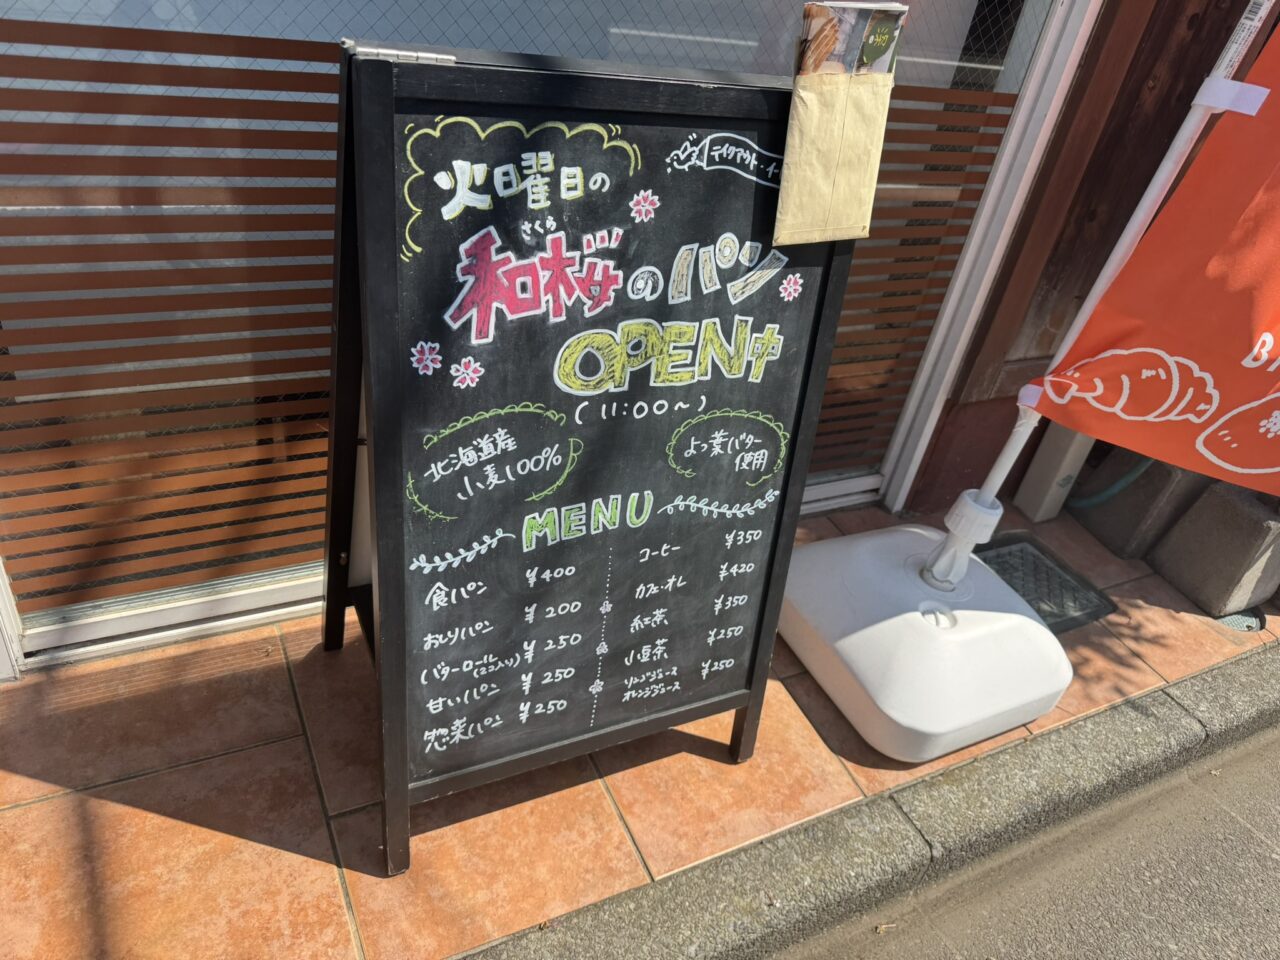 火曜日の
テイクアウト・イー
さくら
和桜のパン
OPEN中
(11:00〜)
北海道産
小麦100%
よつ葉バター
使用
MENU
食パン ¥400
おしりパン ¥200
バターロール(2コ入り) ¥250
甘いパン ¥250
惣菜パン ¥250
コーヒー ¥350
カフェ・オレ ¥420
紅茶 ¥350
小豆茶 ¥250
リンゴジュース
オレンジジュース ¥250